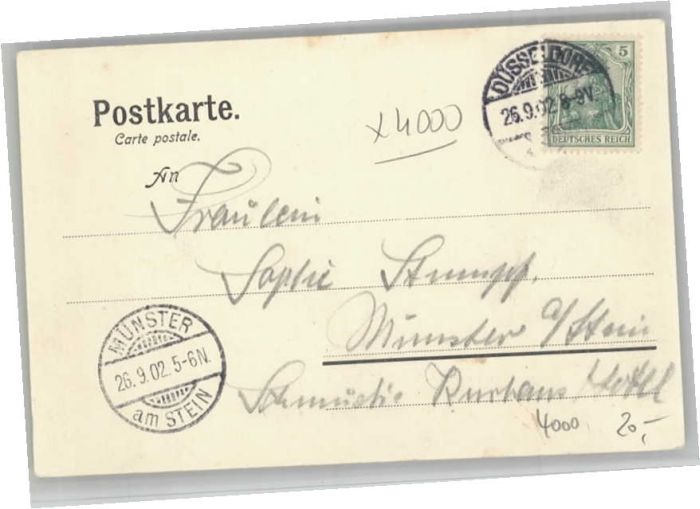 Postkarte.
Carte postale.
x 4000
DÜSSELDORF
26.9.02 8-9V
5
DEUTSCHES REICH
An
Fräulein
Sophie Stumpf.
Münster a/Stein
Kurhaus Hotel
MÜNSTER
26.9.02.5-6N.
am STEIN
4000
20,-